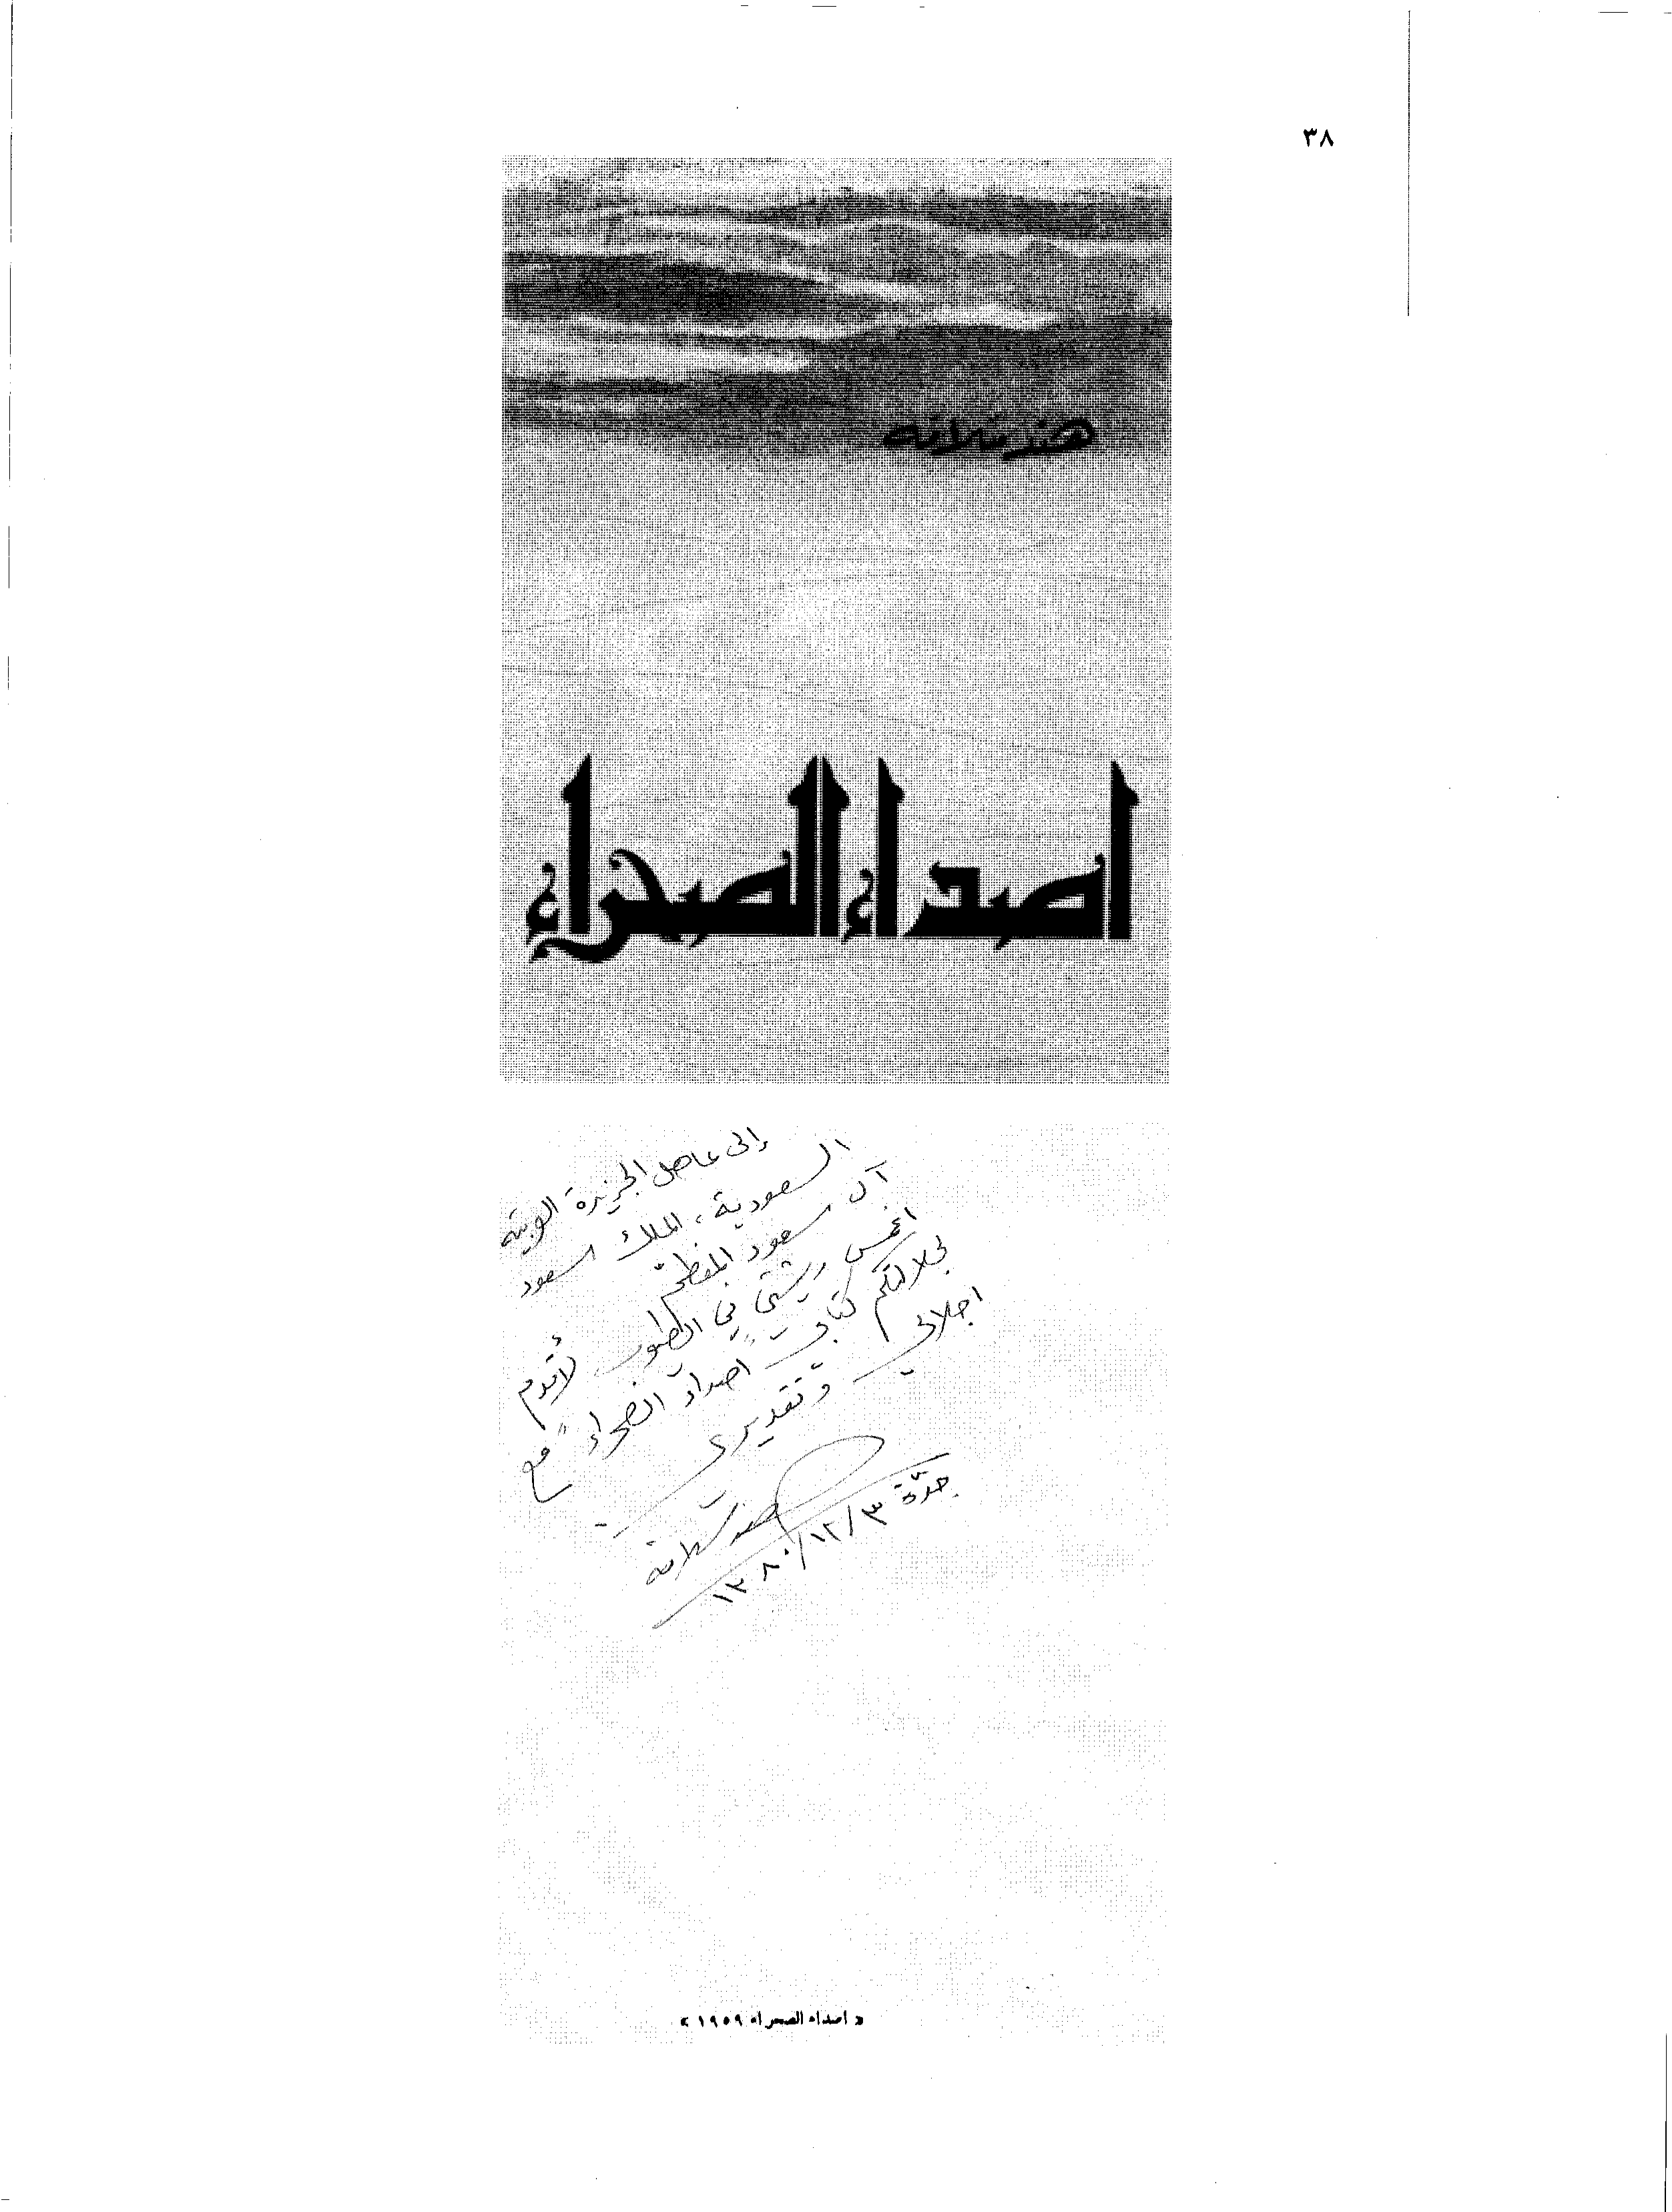 ٣٨
هند سلامه
اصداء الصحراء
إلى عاهل الجزيرة العربية
السعودية، الملك سعود
آل سعود المعظّم
اغمس ريشتي في الطيوب لأُقدم
لجلالتكم كتابي "اصداء الصحراء" مع
اجلالي وتقديري
هند سلامه
جدّة ٣/١٢/١٣٨٠
« اصداء الصحراء ١٩٥٩ »